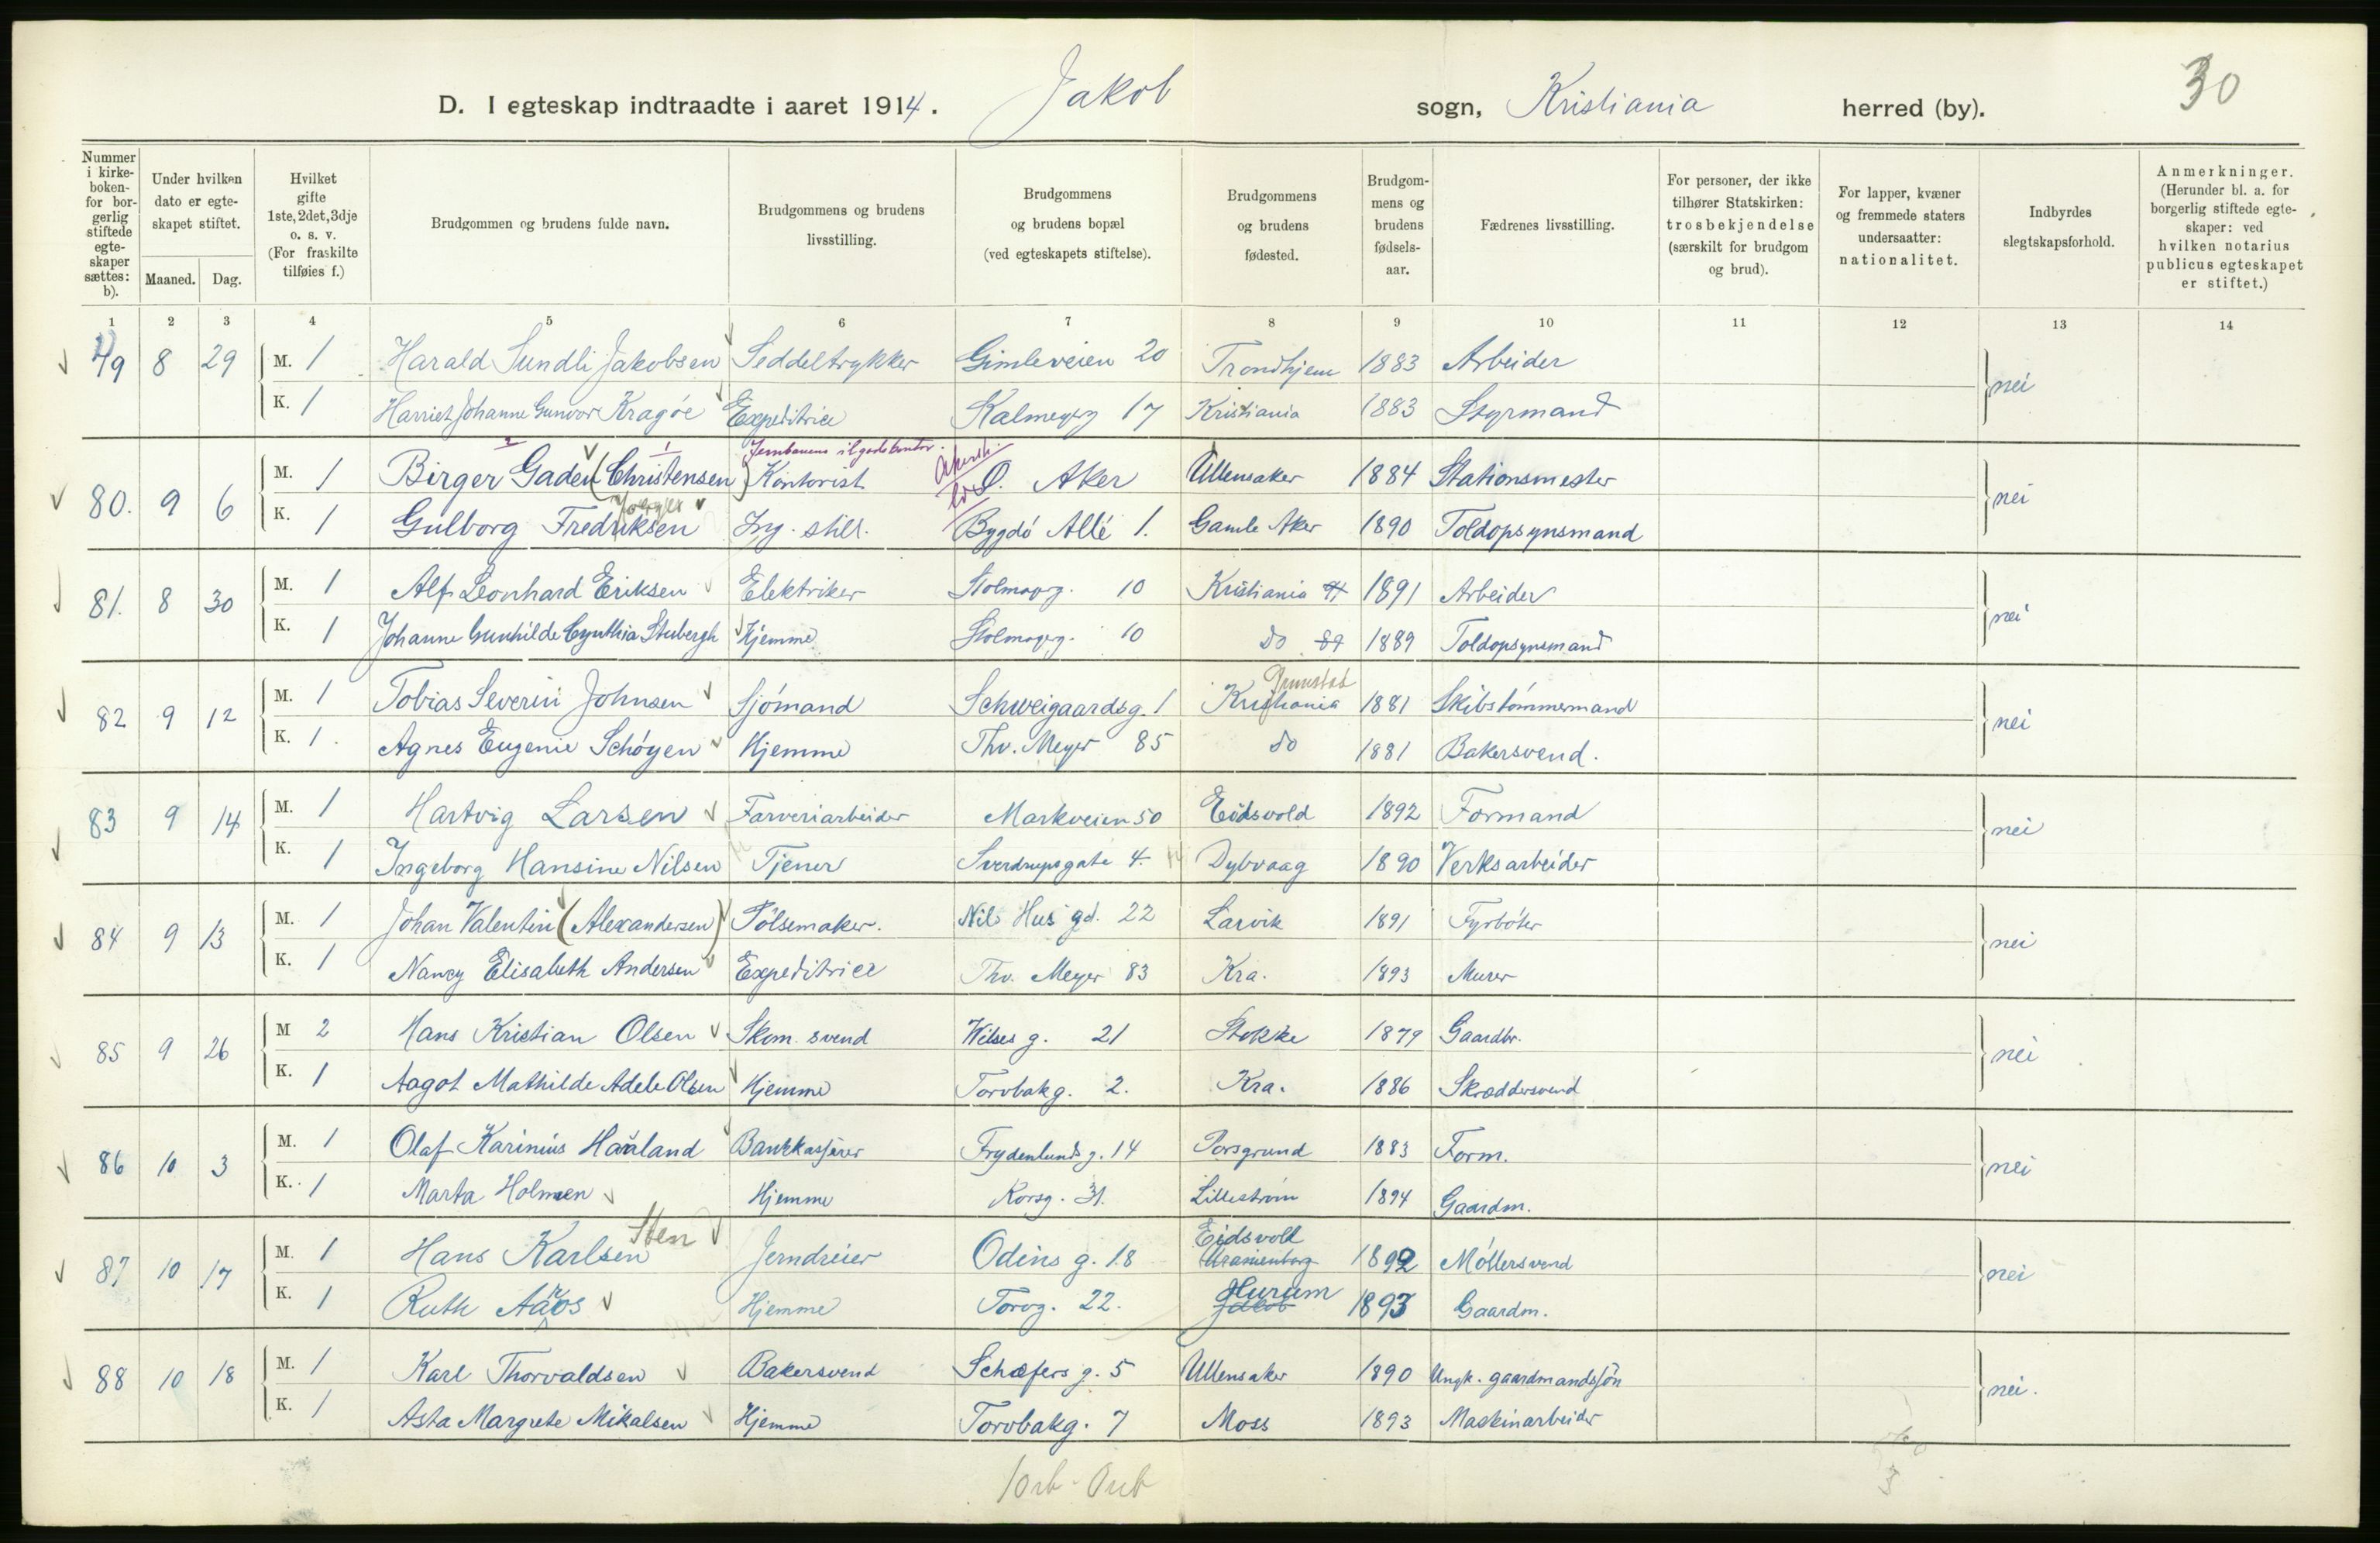 30
D. I egteskap indtraadte i aaret 1914. Jakob sogn, Kristiania herred (by).
Nummer i kirkeboken- for borgerlig stiftede egteskaper sættes: b).
Under hvilken dato er egteskapet stiftet.
Maaned. Dag.
Hvilket gifte 1ste, 2det, 3dje o. s. v. (For fraskilte tilføies f.)
Brudgommen og brudens fulde navn.
Brudgommens og brudens livsstilling.
Brudgommens og brudens bopæl (ved egteskapets stiftelse).
Brudgommens og brudens fødested.
Brudgommens og brudens fødselsaar.
Fædrenes livsstilling.
For personer, der ikke tilhører Statskirken: trosbekjendelse (særskilt for brudgom og brud).
For lapper, kvæner og fremmede staters undersaatter: nationalitet.
Indbyrdes slegtskapsforhold.
Anmerkninger. (Herunder bl. a. for borgerlig stiftede egteskaper: ved hvilken notarius publicus egteskapet er stiftet.)
1 2 3 4 5 6 7 8 9 10 11 12 13 14
79 8 29 M. 1 Harald Sundli Jakobsen Seddeltrykker Gimleveien 20 Trondhjem 1883 Arbeider nei
K. 1 Harriet Johanne Gunvor Kragöe Expeditrice Kalmeyerg 17 Kristiania 1883 Styrmand
Jernbanens ilgodskontor.
80. 9 6 M. 1 Birger Gaden (Christensen) Kontorist Ö. Aker Ullensaker 1884 Stationsmester nei
K. 1 Gulborg Fredriksen Ing. still. Bygdö Allé 1. Gamle Aker 1890 Toldopsynsmand
81. 8 30 M. 1 Alf Leonhard Eriksen Elektriker Stolmagerg. 10 Kristiania 91 1891 Arbeider nei
K. 1 Johanne Gunhilde Cynthia Stubergh Hjemme Stolmagerg. 10 do 89 1889 Toldopsynsmand
Grimstad
82 9 12 M. 1 Tobias Severin Johnsen Sjömand Schweigaardsg. 1 Kristiania 1881 Skibstömmermand nei
K. 1. Agnes Eugenie Schöyen Hjemme Thv. Meyer 85 do 1881 Bakersvend.
83 9 14 M. 1 Hartvig Larsen Farveriarbeider Markveien 50 Eidsvold 1892 Formand nei
K. 1 Ingeborg Hansine Nilsen Tjener Sverdrupsgate 4. Dybvaag 1890 Verksarbeider
84 9 13 M. 1 Johan Valentin (Alexandersen) Pölsemaker. Nils Hus gd. 22 Larvik 1891 Fyrböter nei
K. 1 Nancy Elisabeth Andersen Expeditrice Thv. Meyer 83 Kra. 1893 Murer
85 9 26 M 2 Hans Kristian Olsen Skom. svend Wilses g. 21 Stokke 1879 Gaardbr. nei
K. 1 Aagot Mathilde Adele Olsen Hjemme Torvbakg. 2. Kra. 1886 Skræddersvend
86 10 3 M. 1 Olaf Karinius Haaland Bankkasjerer Frydenlunds g. 14 Porsgrund 1883 Form. nei
K. 1 Marta Holmsen Hjemme Korsg. 31. Lilleström 1894 Gaardm.
Sten Eidsvold
87 10 17 M. 1 Hans Karlsen Jerndreier Odins g. 18 Uranienborg 1892 Möllersvend nei
Hurum
K. 1 Ruth Aaros Hjemme Torvg. 22. Jakob 1893 Gaardm.
88 10 18 M. 1 Karl Thorvaldsen Bakersvend Schæfers g. 5 Ullensaker 1890 Ungk. gaardmandssön nei.
K. 1 Asta Margrete Mikalsen Hjemme Torvbakg. 7 Moss 1893 Maskinarbeider